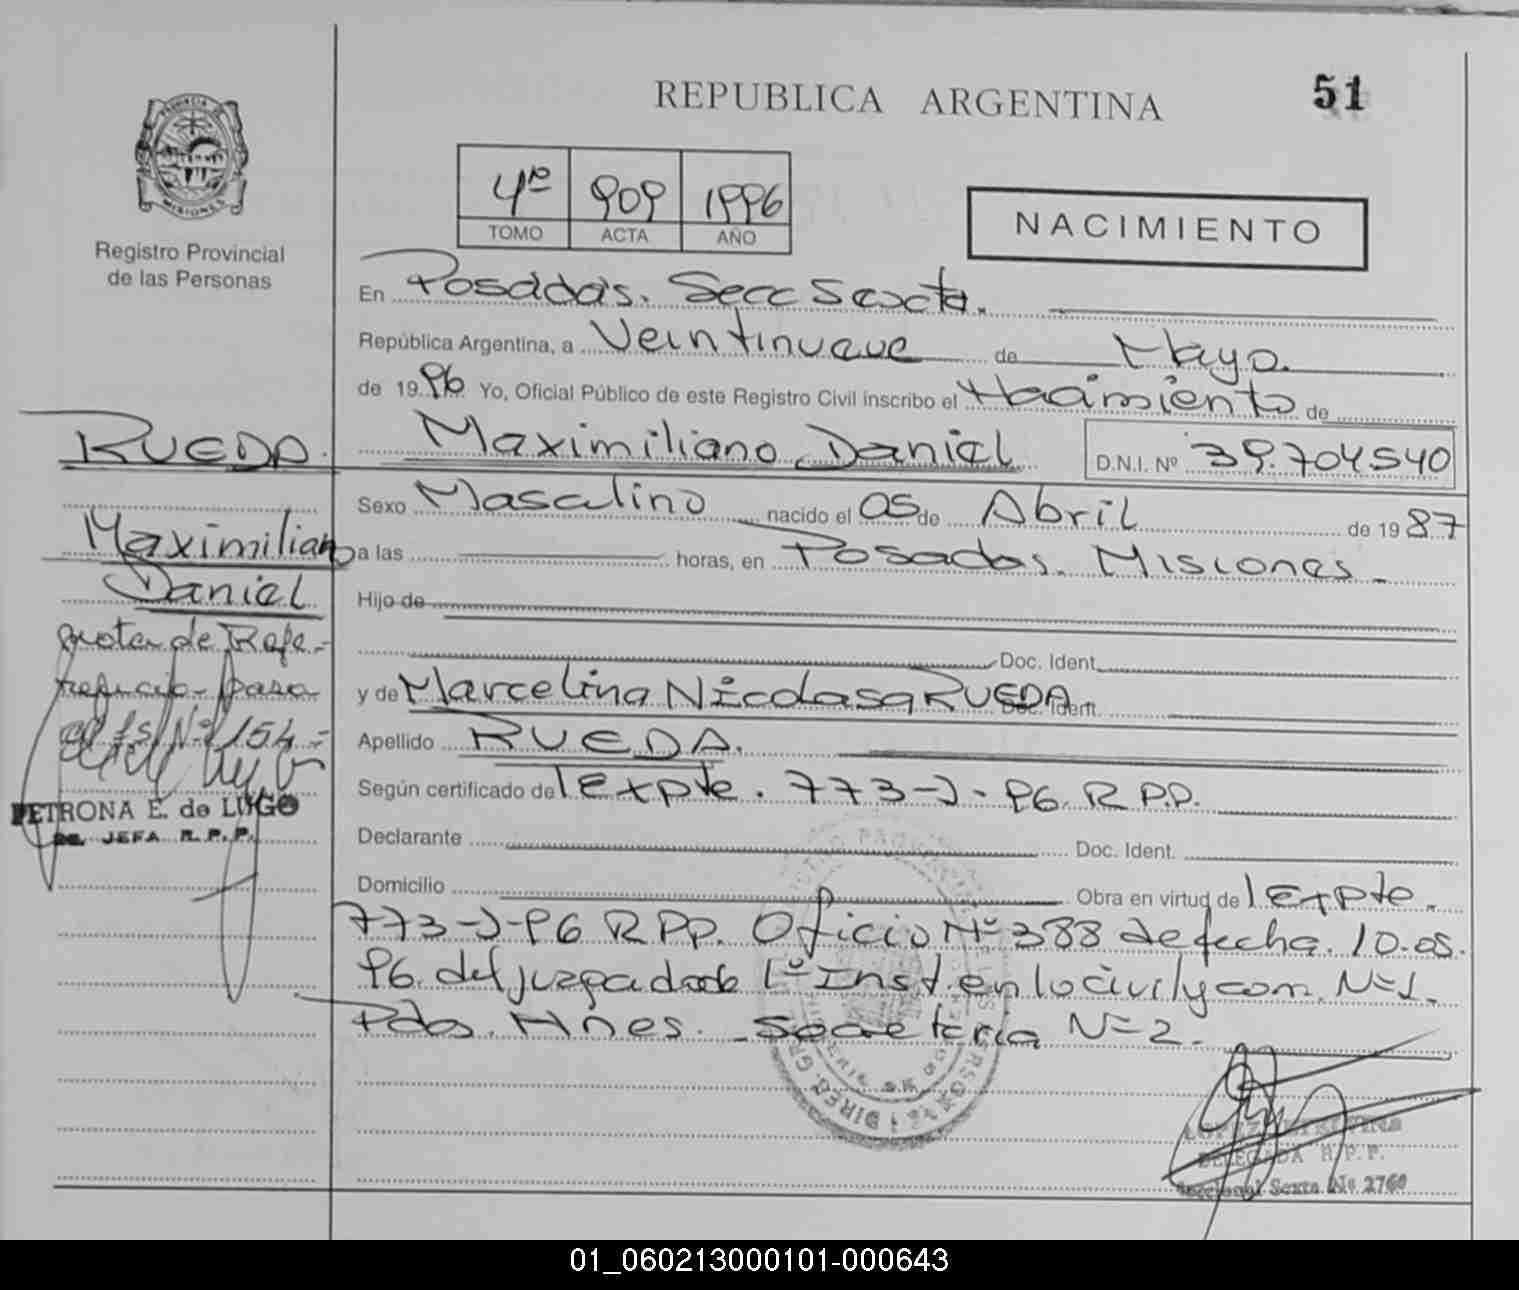 REPUBLICA ARGENTINA
51
PROVINCIA
MISIONES
Registro Provincial
de las Personas
4º 909 1996
TOMO ACTA AÑO
NACIMIENTO
En Posadas. Secc Sexta.
República Argentina, a Veintinueve de Mayo.
de 1996 Yo, Oficial Público de este Registro Civil inscribo el Nacimiento de
Maximiliano Daniel D.N.I. Nº 39.704540
Sexo Masculino nacido el 05 de Abril de 1987
a las horas, en Posadas. Misiones.
Hijo de
Doc. Ident.
y de Marcelina Nicolasa RUEDA Doc. Ident.
Apellido RUEDA.
Según certificado de Expte. 773-J-96 R P.P.
Declarante Doc. Ident.
Domicilio Obra en virtud de Expte.
773-J-96 R PP. Oficio Nº 388 de fecha. 10.05.
96. del juzgado de 1º Inst. en lo civil y com. Nº 1.
Pdas. Mnes. Secretaria Nº 2.
RUEDA.
Maximiliano
Daniel
nota de Refe-
rencia pasa
al Nº 154
PETRONA E. de LUGO
JEFA R. P. P.
DELEGADA R. P. P.
Seccional Sexta Nº 2760
01_060213000101-000643